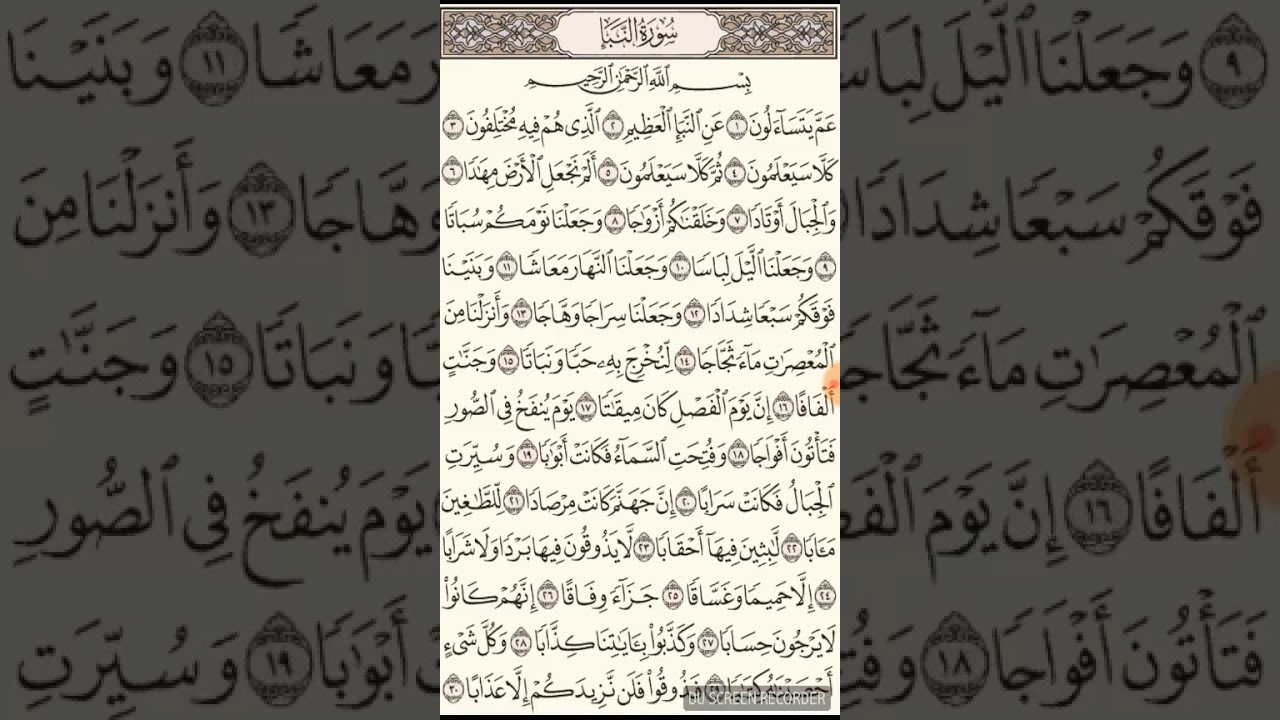 سُورَةُ النَّبَإِ
بِسْمِ اللَّهِ الرَّحْمَٰنِ الرَّحِيمِ
عَمَّ يَتَسَآءَلُونَ ١ عَنِ ٱلنَّبَإِ ٱلْعَظِيمِ ٢ ٱلَّذِى هُمْ فِيهِ مُخْتَلِفُونَ ٣
كَلَّا سَيَعْلَمُونَ ٤ ثُمَّ كَلَّا سَيَعْلَمُونَ ٥ أَلَمْ نَجْعَلِ ٱلْأَرْضَ مِهَٰدًا ٦
وَٱلْجِبَالَ أَوْتَادًا ٧ وَخَلَقْنَٰكُمْ أَزْوَٰجًا ٨ وَجَعَلْنَا نَوْمَكُمْ سُبَاتًا
٩ وَجَعَلْنَا ٱلَّيْلَ لِبَاسًا ١٠ وَجَعَلْنَا ٱلنَّهَارَ مَعَاشًا ١١ وَبَنَيْنَا
فَوْقَكُمْ سَبْعًا شِدَادًا ١٢ وَجَعَلْنَا سِرَاجًا وَهَّاجًا ١٣ وَأَنزَلْنَا مِنَ
ٱلْمُعْصِرَٰتِ مَآءً ثَجَّاجًا ١٤ لِّنُخْرِجَ بِهِۦ حَبًّا وَنَبَاتًا ١٥ وَجَنَّٰتٍ
أَلْفَافًا ١٦ إِنَّ يَوْمَ ٱلْفَصْلِ كَانَ مِيقَٰتًا ١٧ يَوْمَ يُنفَخُ فِى ٱلصُّورِ
فَتَأْتُونَ أَفْوَاجًا ١٨ وَفُتِحَتِ ٱلسَّمَآءُ فَكَانَتْ أَبْوَٰبًا ١٩ وَسُيِّرَتِ
ٱلْجِبَالُ فَكَانَتْ سَرَابًا ٢٠ إِنَّ جَهَنَّمَ كَانَتْ مِرْصَادًا ٢١ لِّلطَّٰغِينَ
مَـَٔابًا ٢٢ لَّٰبِثِينَ فِيهَآ أَحْقَابًا ٢٣ لَّا يَذُوقُونَ فِيهَا بَرْدًا وَلَا شَرَابًا
٢٤ إِلَّا حَمِيمًا وَغَسَّاقًا ٢٥ جَزَآءً وِفَاقًا ٢٦ إِنَّهُمْ كَانُوا۟
لَا يَرْجُونَ حِسَابًا ٢٧ وَكَذَّبُوا۟ بِـَٔايَٰتِنَا كِذَّابًا ٢٨ وَكُلَّ شَىْءٍ
فَذُوقُوا۟ فَلَن نَّزِيدَكُمْ إِلَّا عَذَابًا ٣٠
DU SCREEN RECORDER